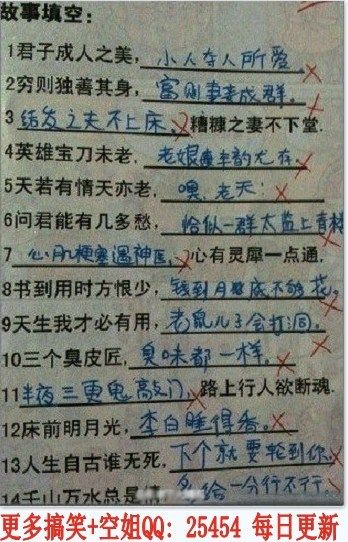 故事填空:
1君子成人之美, 小人夺人所爱。
2穷则独善其身, 富则妻妾成群。
3 结发之夫不上床, 糟糠之妻不下堂.
4英雄宝刀未老, 老娘丰韵尤存
5天若有情天亦老, 噢,老天!
6问君能有几多愁, 恰似一群太监上青楼
7 心肌梗塞遇神医, 心有灵犀一点通,
8书到用时方恨少, 钱到月底不够花。
9天生我才必有用, 老鼠儿子会打洞。
10三个臭皮匠, 臭味都一样。
11半夜三更鬼敲门, 路上行人欲断魂.
12床前明月光, 李白睡得香。
13人生自古谁无死, 下个就要轮到你
14千山万水总是情, 多给一分行不行。
更多搞笑+空姐QQ: 25454 每日更新